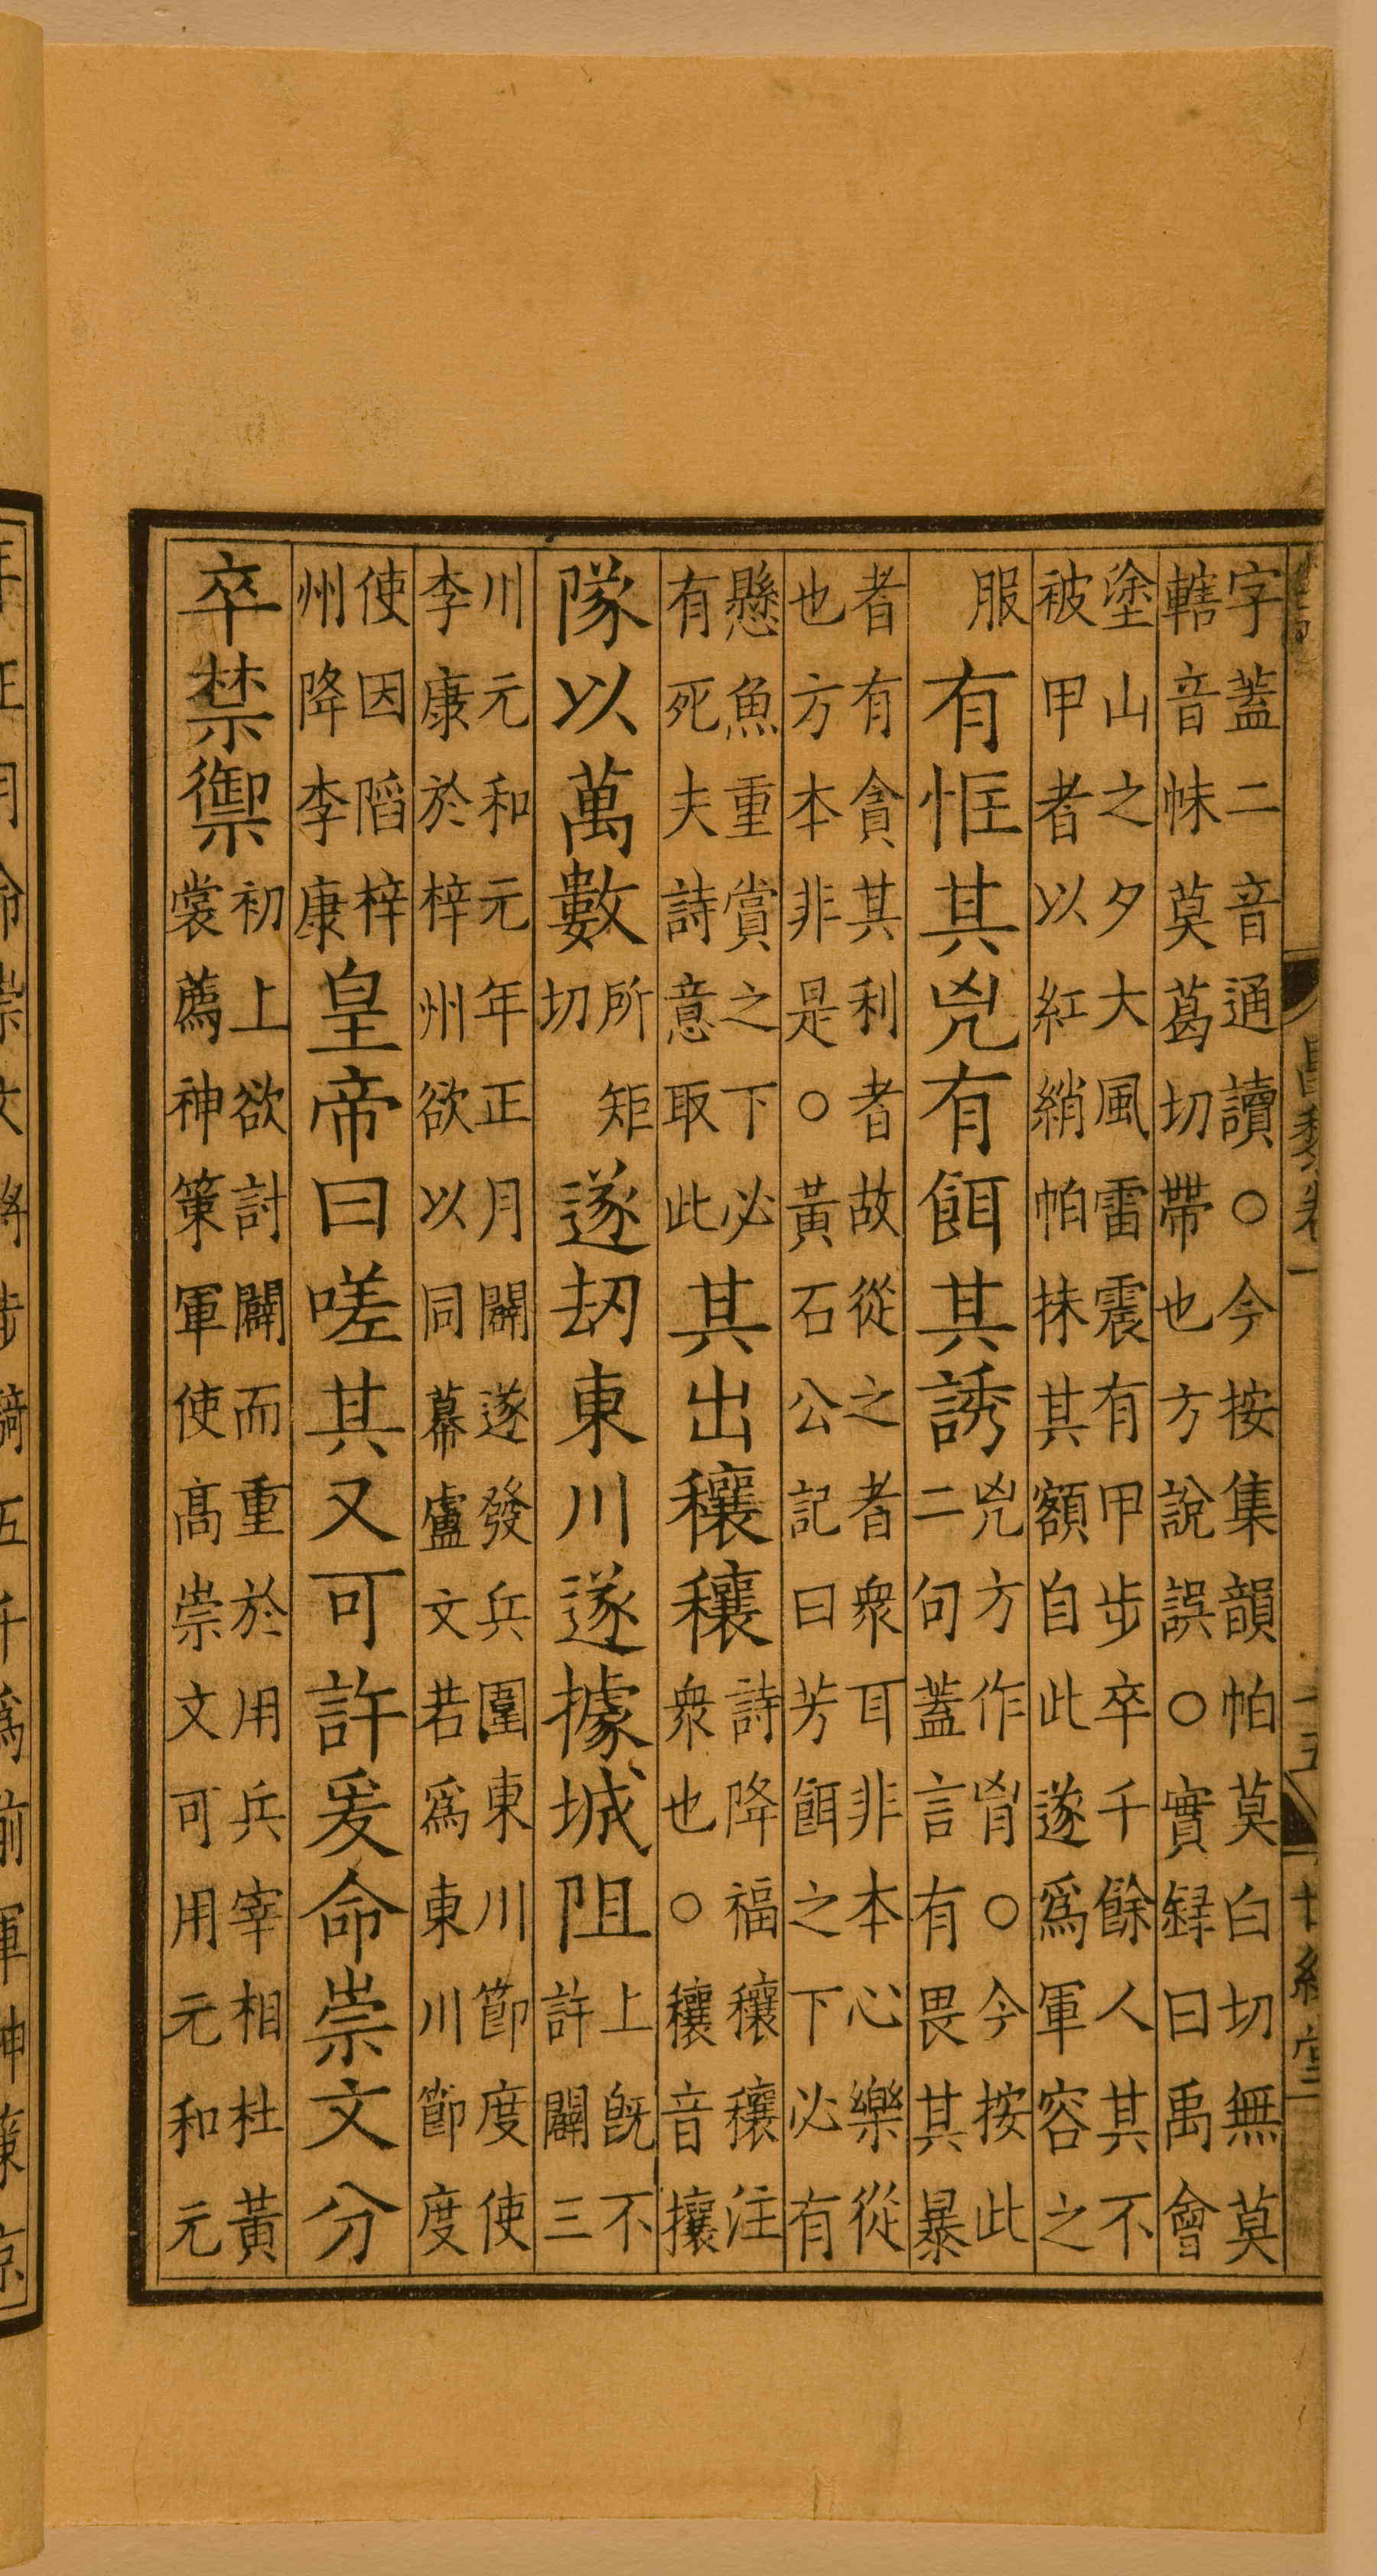 字蓋二音通讀○今按集韻帕莫白切無莫
轄音帓莫葛切帶也方說誤○實録曰禹會
塗山之夕大風雷震有甲步卒千餘人其不
被甲者以紅綃帕抹其額自此遂爲軍容之
服
有恇其兇有餌其誘
兇方作㐫○今按此
二句蓋言有畏其暴
者有貪其利者故從之者衆耳非本心樂從
也方本非是○黃石公記曰芳餌之下必有
懸魚重賞之下必
有死夫詩意取此
其出穰穰
詩降福穰穰注
衆也○穰音攘
隊以萬數
所矩
切
遂刼東川遂據城阻
上旣不
許闢三
川元和元年正月闢遂發兵圍東川節度使
李康於梓州欲以同幕盧文若爲東川節度
使因䧟梓
州降李康
皇帝曰嗟其又可許爰命崇文分
卒禁禦
初上欲討闢而重於用兵宰相杜黃
裳薦神策軍使髙崇文可用元和元